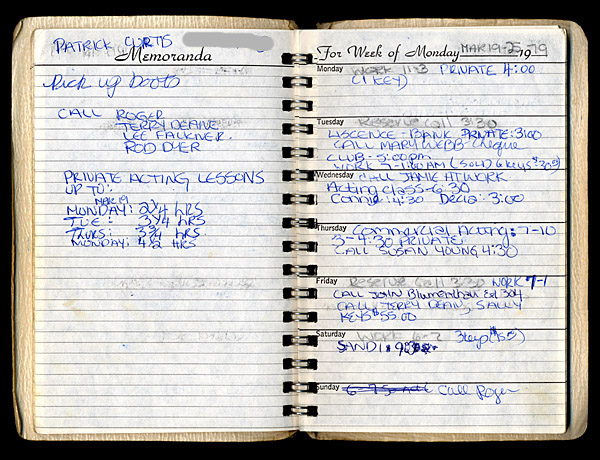 PATRICK CURTIS
Memoranda
Pick up boots
CALL ROGER
TERRY DEANE
LEE FAULKNER
ROD DYER
PRIVATE ACTING LESSONS
UP TO:
MAR 19
MONDAY: 2 1/4 HRS
TUE: 3 1/4 HRS
THURS: 3 3/4 HRS
MONDAY: 4 1/2 HRS
For Week of Monday MAR 19-25-79 19
Monday WORK 11-3 PRIVATE 4:00
(1 KEY)
Tuesday Reserve Call 3:30
LISCENCE - BANK PRIVATE: 3:00
CALL MARY WEBB - cheque
CLUB - 5:00pm
WORK 7-1:00AM (SOLD 6 keys $30)
Wednesday CALL JAMIE AT WORK
Acting class - 6:30
Connie: 4:30 3:00
Thursday Commercial Acting: 7-10
3-4:30 PRIVATE
CALL SUSAN YOUNG 4:30
Friday Reserve Call 3:30 WORK 7-1
CALL John Blumenthal Ext 304
CALL, TERRY DEAN, SALLY
KEYS $55.00
Saturday WORK 3 keys
SANDI
Sunday Call Roger